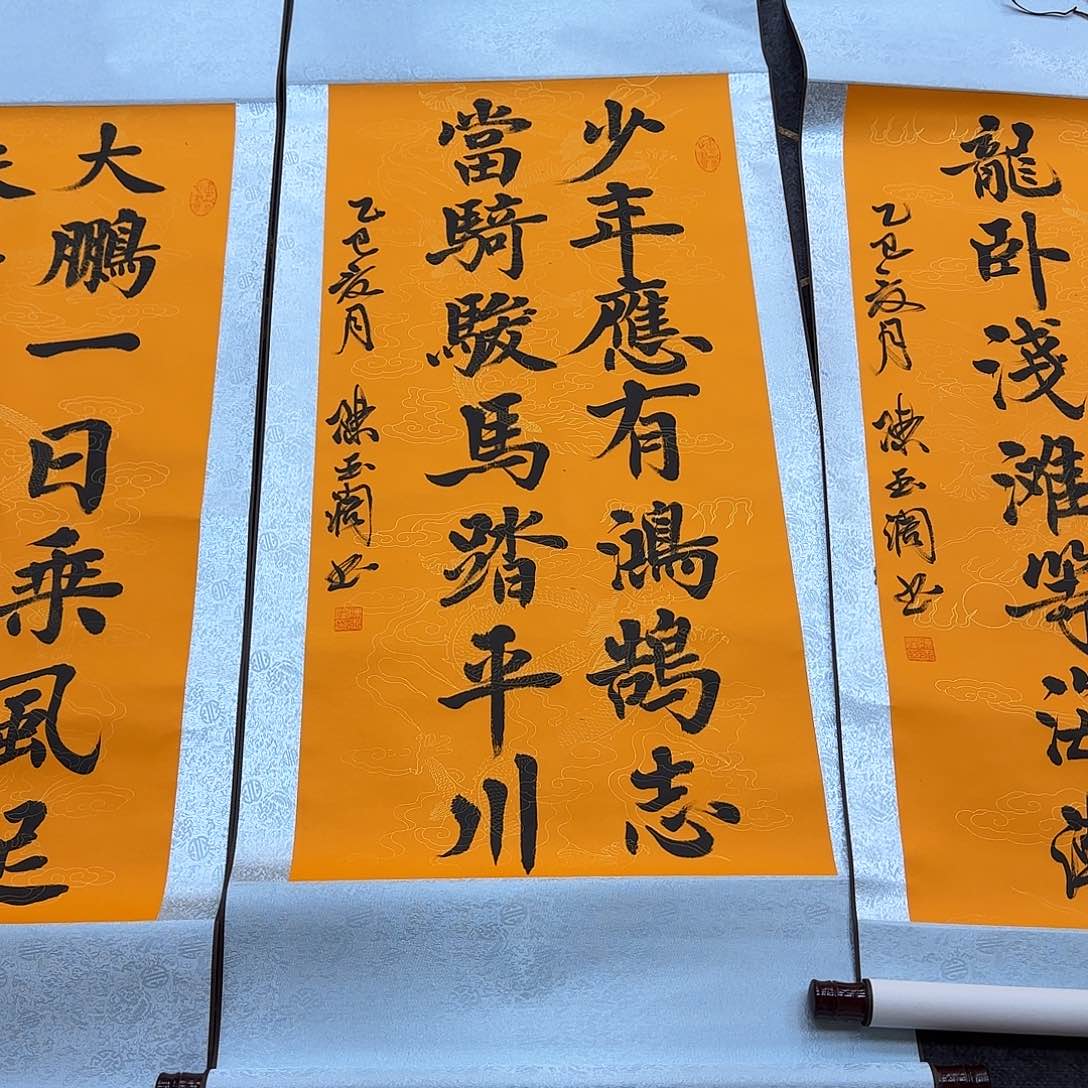 龍卧淺灘等海潮
乙巳夏月 陳玉书
少年應有鴻鵠志
當騎駿馬踏平川
乙巳夏月 陳玉书
大鵬一日乘風起